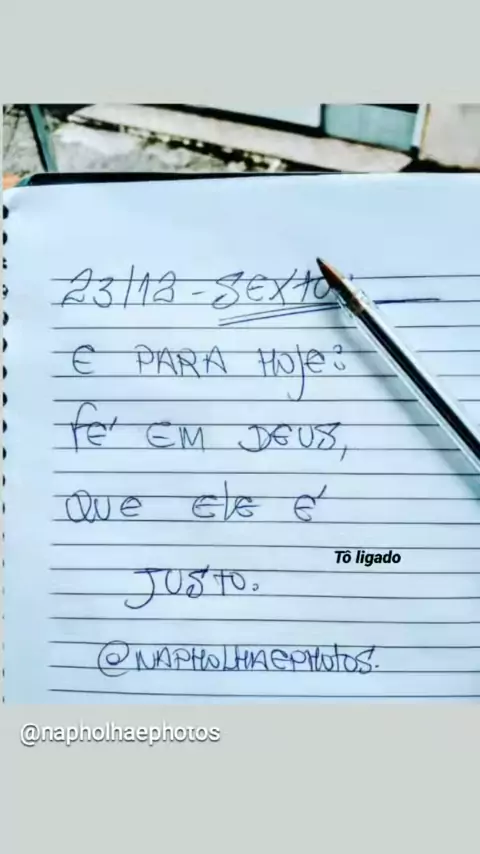 23/12 - SEXTOU
E PARA HOJE:
FÉ EM DEUS,
QUE ELE É
Tô ligado
JUSTO.
@NAPHOLHAEPHOTOS.
@napholhaephotos